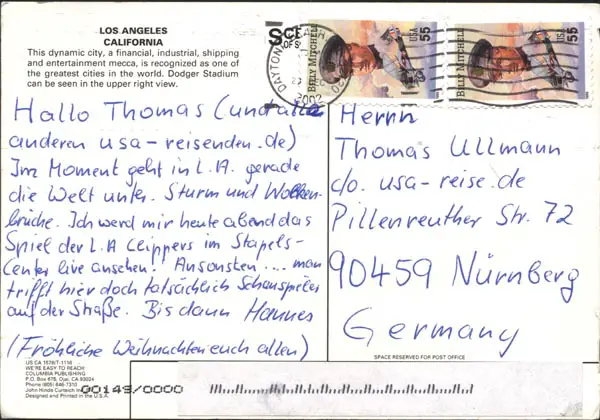 LOS ANGELES
CALIFORNIA
This dynamic city, a financial, industrial, shipping
and entertainment mecca, is recognized as one of
the greatest cities in the world. Dodger Stadium
can be seen in the upper right view.
Hallo Thomas (und alle
anderen usa-reisenden.de)
Im Moment geht in L.A. gerade
die Welt unter. Sturm und Wolken-
brüche. Ich werd mir heute abend das
Spiel der L.A Clippers im Stapels-
Center live ansehen. Ansonsten .... man
trifft hier doch tatsächlich Schauspieler
auf der Straße. Bis dann Hannes
(Fröhliche Weihnachten euch allen)
US CA 1578/T-1116
WE'RE EASY TO REACH!
COLUMBIA PUBLISHING
P.O. Box 678, Ojai, CA 93024
Phone (805) 646-7310
John Hinde Curteich
00149/0000
DAYTONA BEACH
2002
BILLY MITCHELL
USA
55
BILLY MITCHELL
USA
55
Herrn
Thomas Ullmann
c/o. usa-reise.de
Pillenreuther Str. 72
90459 Nürnberg
Germany
SPACE RESERVED FOR POST OFFICE